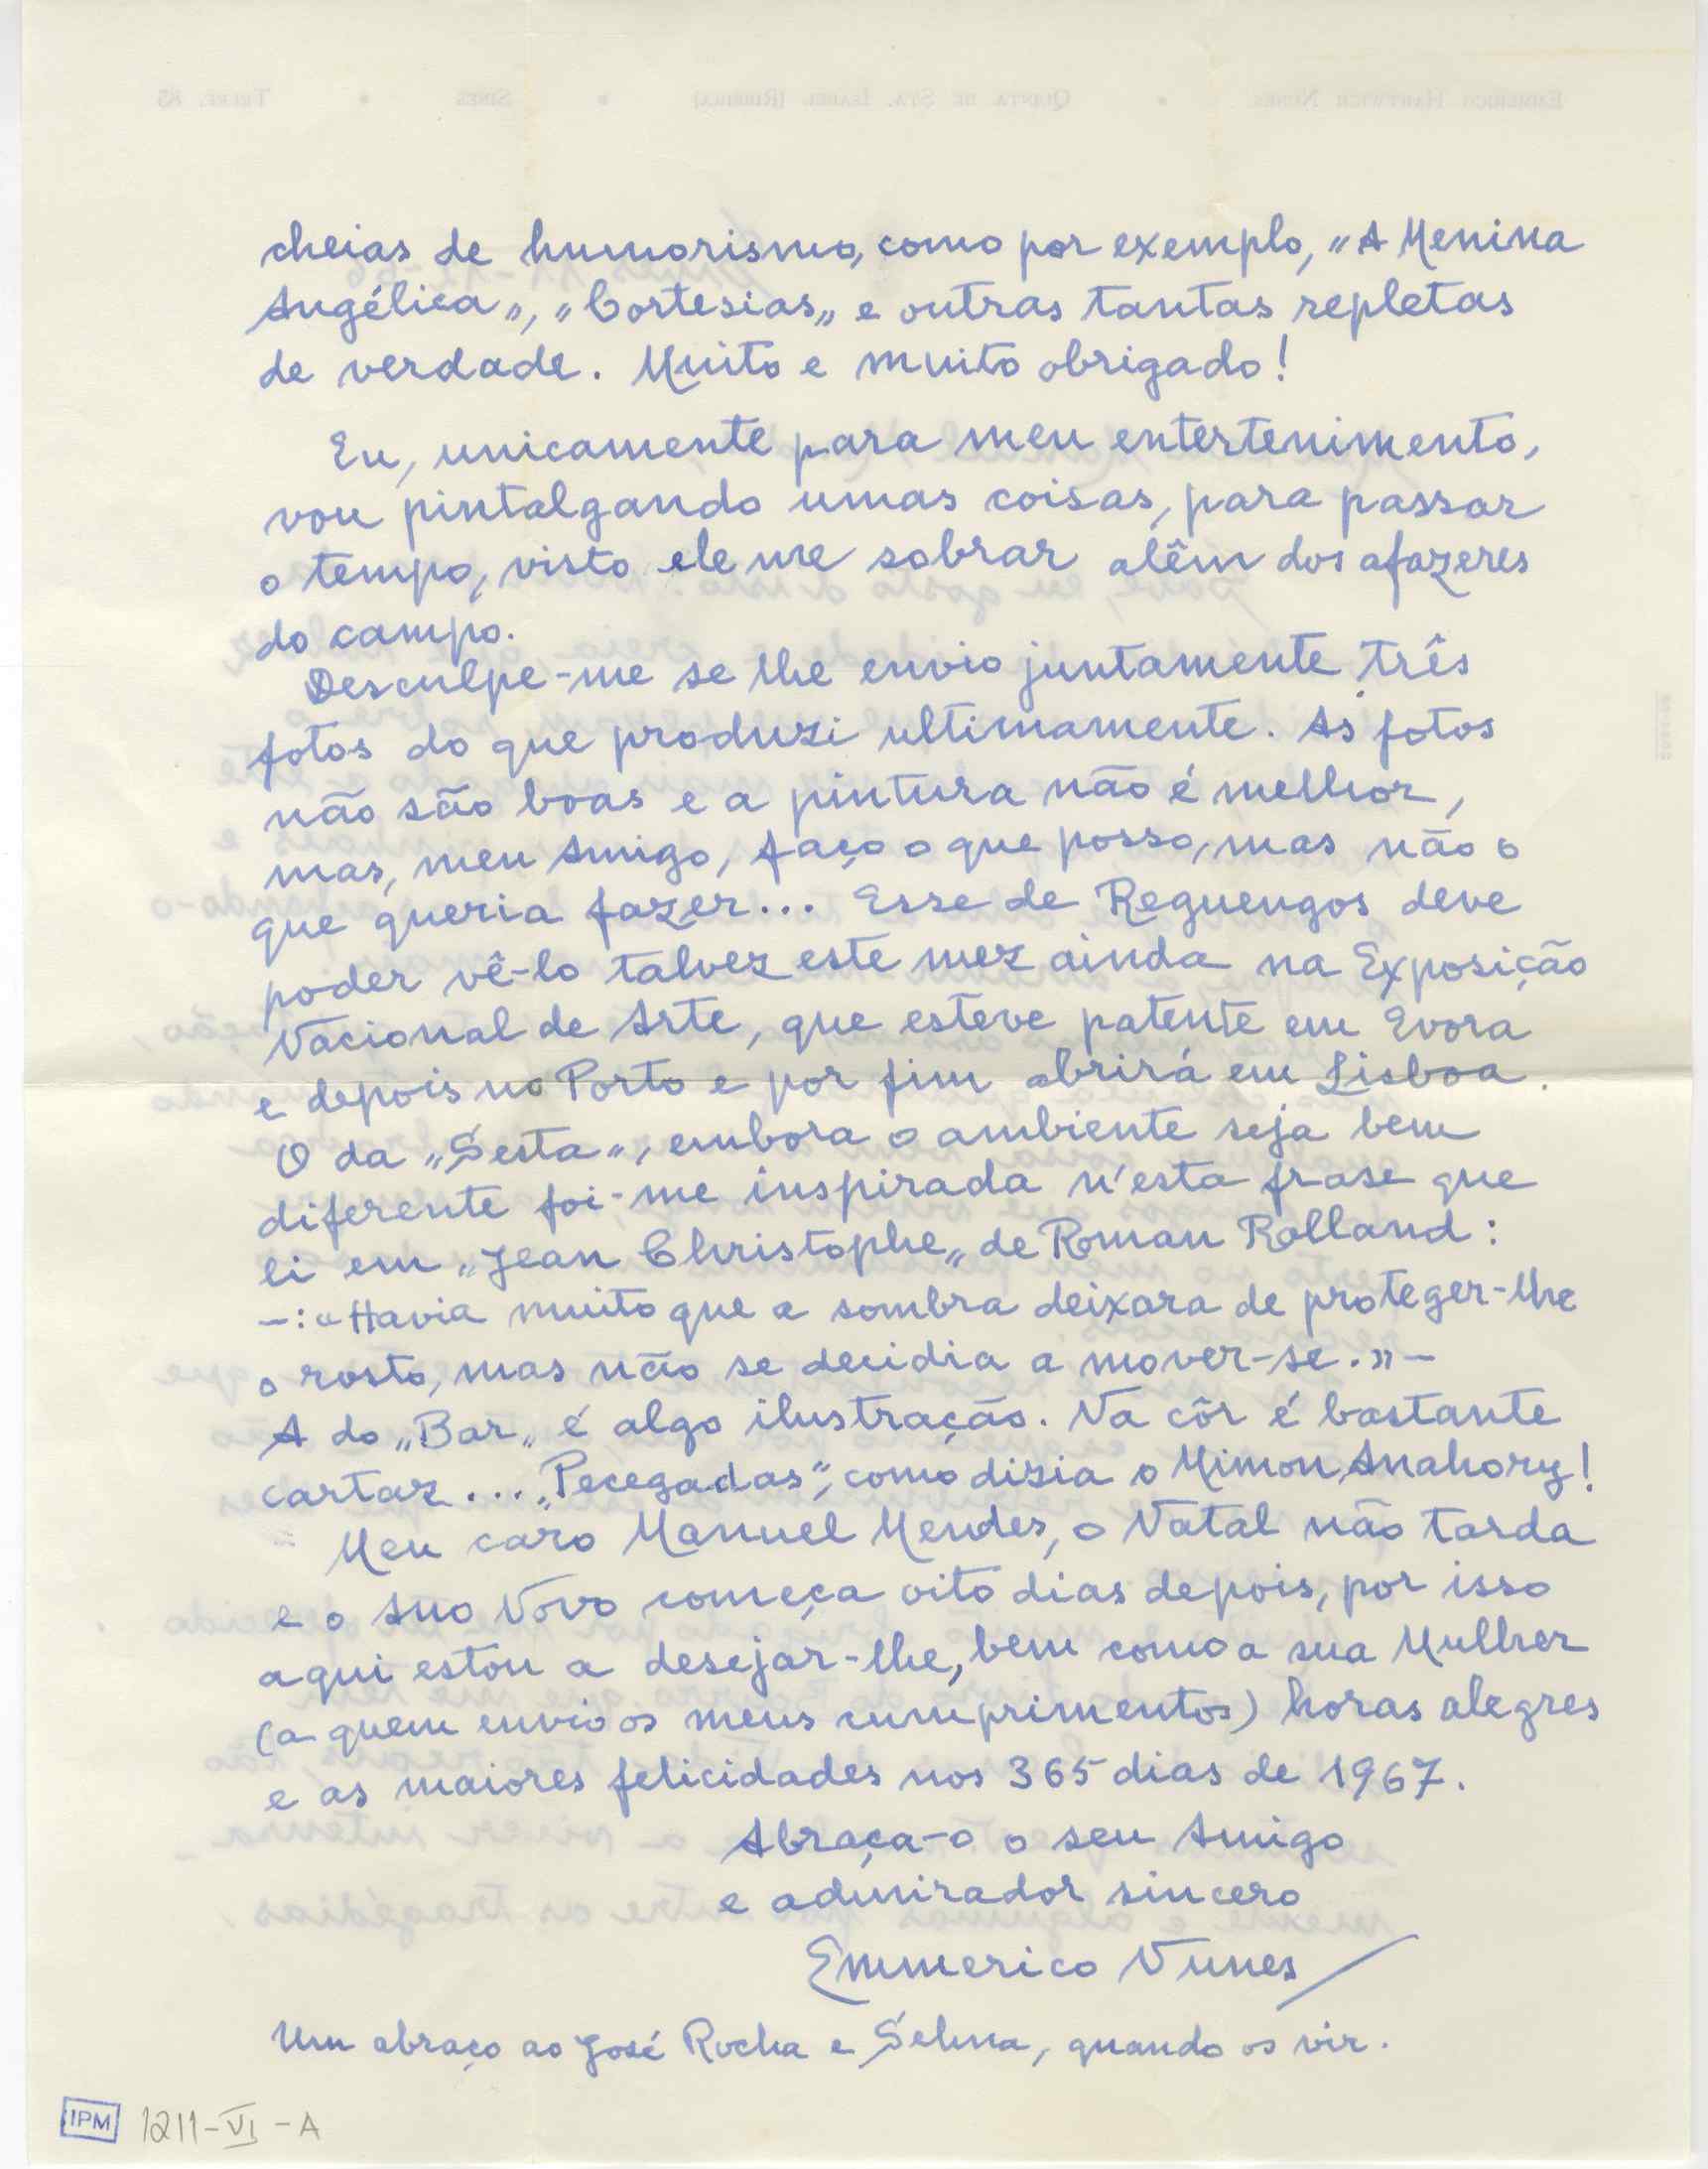 cheias de humorismo, como por exemplo, "A Menina
Angélica", "Cortesias" e outras tantas repletas
de verdade. Muito e muito obrigado!
Eu, unicamente para meu entertenimento,
vou pintalgando umas coisas, para passar
o tempo, visto ele me sobrar alêm dos afazeres
do campo.
Desculpe-me se lhe envio juntamente três
fotos do que produzi ultimamente. As fotos
não são boas e a pintura não é melhor,
mas, meu Amigo, faço o que posso, mas não o
que queria fazer... Esse de Reguengos deve
poder vê-lo talvez este mez ainda na Exposição
Nacional de Arte, que esteve patente em Evora
e depois no Porto e por fim abrirá em Lisboa.
O da "Sesta", embora o ambiente seja bem
diferente foi-me inspirada n'esta frase que
li em "Jean Christophe" de Roman Rolland:
-: «Havia muito que a sombra deixara de proteger-lhe
o rosto, mas não se decidia a mover-se.» -
A do "Bar" é algo ilustração. Na côr é bastante
cartaz... "Pecegadas", como dizia o Mimon Anahory!
Meu caro Manuel Mendes, o Natal não tarda
e o Ano Novo começa oito dias depois, por isso
aqui estou a desejar-lhe, bem como a sua Mulher
(a quem envio os meus cumprimentos) horas alegres
e as maiores felicidades nos 365 dias de 1967.
Abraça-o o seu Amigo
e admirador sincero
Emmerico Nunes
Um abraço ao José Rocha e Selma, quando os vir.
IPM 1211-VI-A